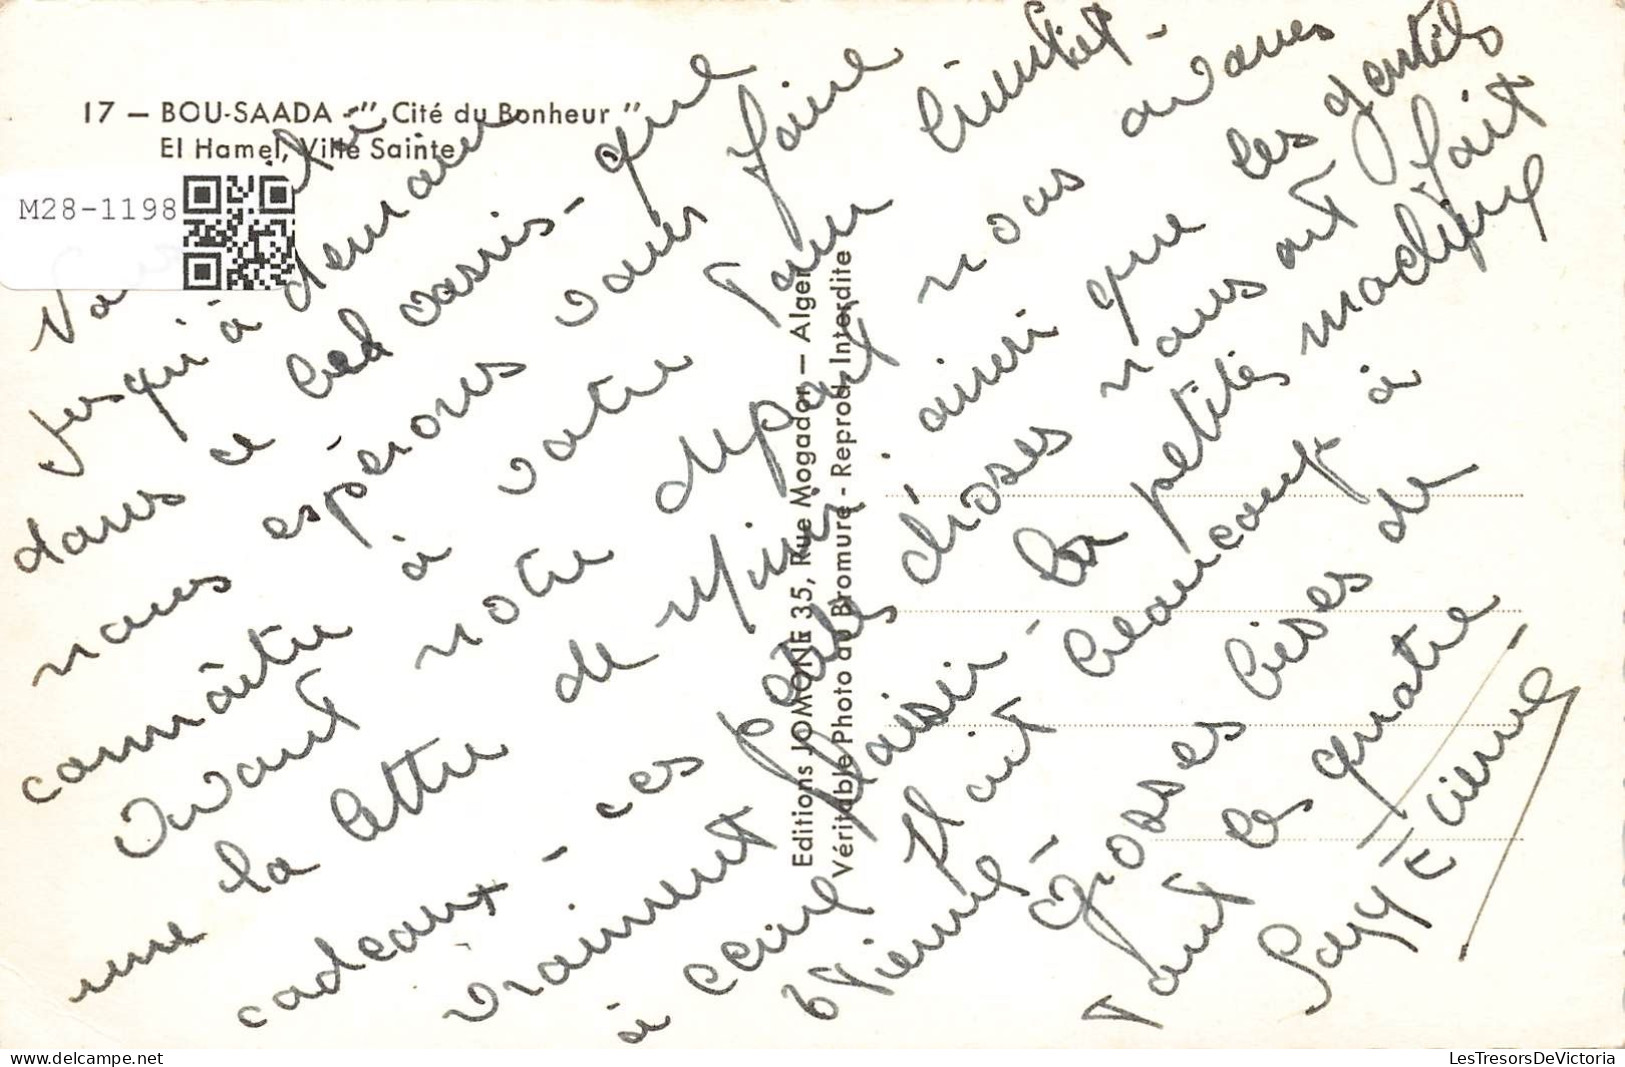 17 — BOU-SAADA - " Cité du Bonheur "
El Hamel, Ville Sainte
M28-1198
jusqu'à demain
dans ce bel oasis - que
nous espérons vous faire
connaître à votre tour bientôt -
Avant notre départ nous avons
une la lettre de Mimi ainsi que les gentils
cadeaux - ces petites choses nous ont fait
vraiment plaisir - la petite machine
à Plait beaucoup à
Etienne -
Grosses bises de
Tout les quatre
Etienne
Editions JOMONE 35, Rue Mogador — Alger
Véritable Photo au Bromure - Reprod. Interdite
LesTresorsDeVictoria
www.delcampe.net